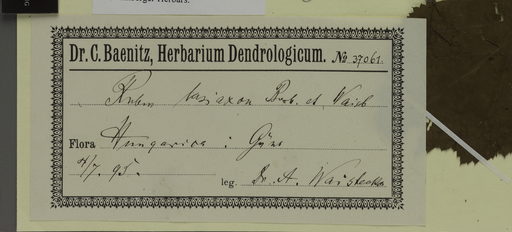 Dr. C. Baenitz, Herbarium Dendrologicum. No 37061.
Rubus laxiaxon Borb. et Waisb
Flora Hungarica: Güns
/7. 95.
leg. Dr. A. Waisbecker